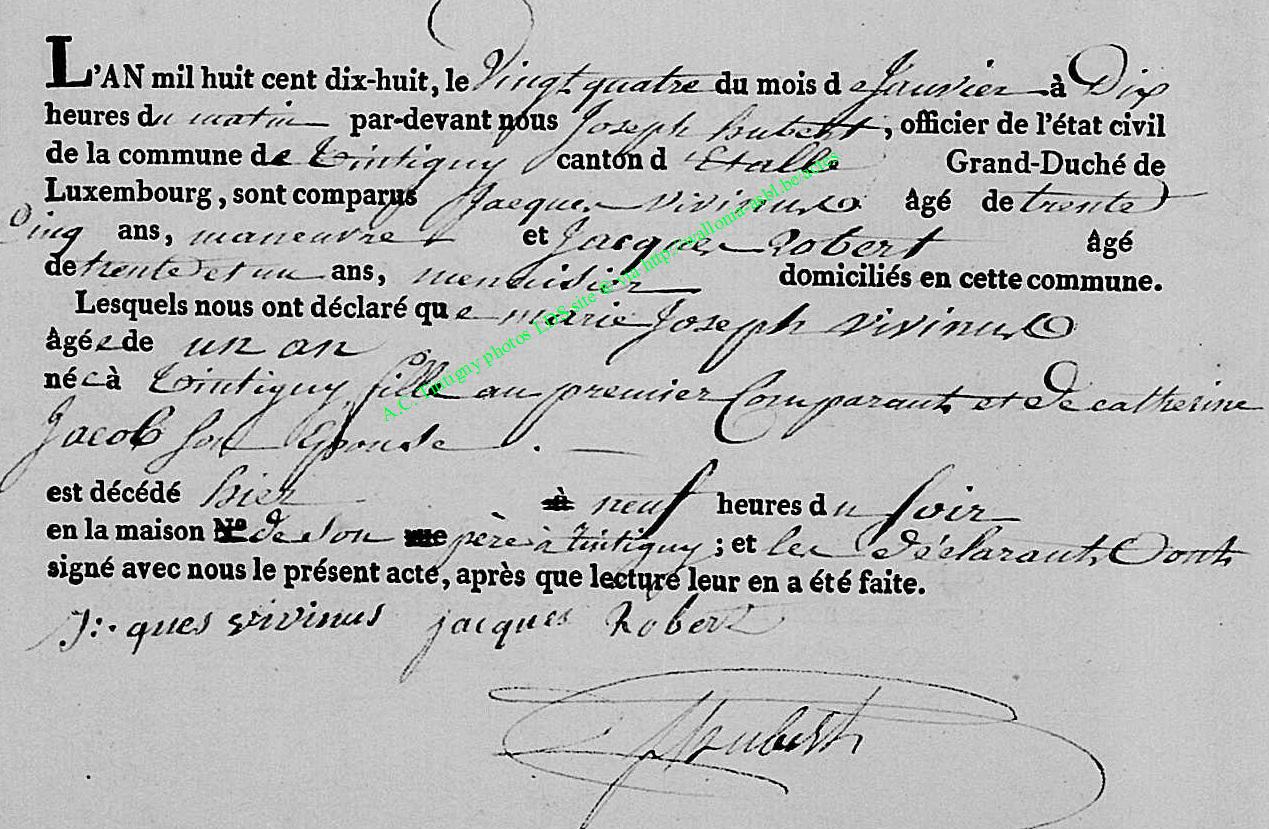 L'AN mil huit cent dix-huit, le Vingt quatre du mois de Janvier à Dix
heures du matin par-devant nous Joseph hubert, officier de l'état civil
de la commune de tintigny canton d'Etalle Grand-Duché de
Luxembourg, sont comparus Jacques vivinus âgé de trente
Cinq ans, maneuvre et Jacques Robert âgé
de trente et un ans, menuisier domiciliés en cette commune.
Lesquels nous ont déclaré que marie Joseph vivinus
âgée de un an
née à tintigny fille au premier Comparant et de catherine
Jacob son Epouse.
est décédé hier à neuf heures du soir
en la maison No de son rue père à tintigny; et les déclarants ont
signé avec nous le présent acte, après que lecture leur en a été faite.
J:.ques vivinus jacques Robert
Hubert
A.C. Tintigny photos LDS site @ via http://wallonia-asbl.be/actes